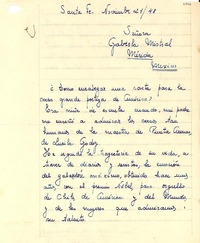 Santa Fe. Noviembre 21/48
Señora
Gabriela Mistral
Mérida
Mexico
¿Como encabezar una carta para la
mas grande poetiza de América?
Era niña de escuela cuando, mi padre
me enseñó a admirar los
humanos de la maestra de Punta Arenas,
de Lucila Godoy.
He seguido la trayectoria de su vida, a
través de diarios y revistas, la emoción
del galardón máximo, obtenido hace unos
años con el premio Nóbel para orgullo
de Chile de América y del Mundo,
y de las mujeres que admiramos
su talento